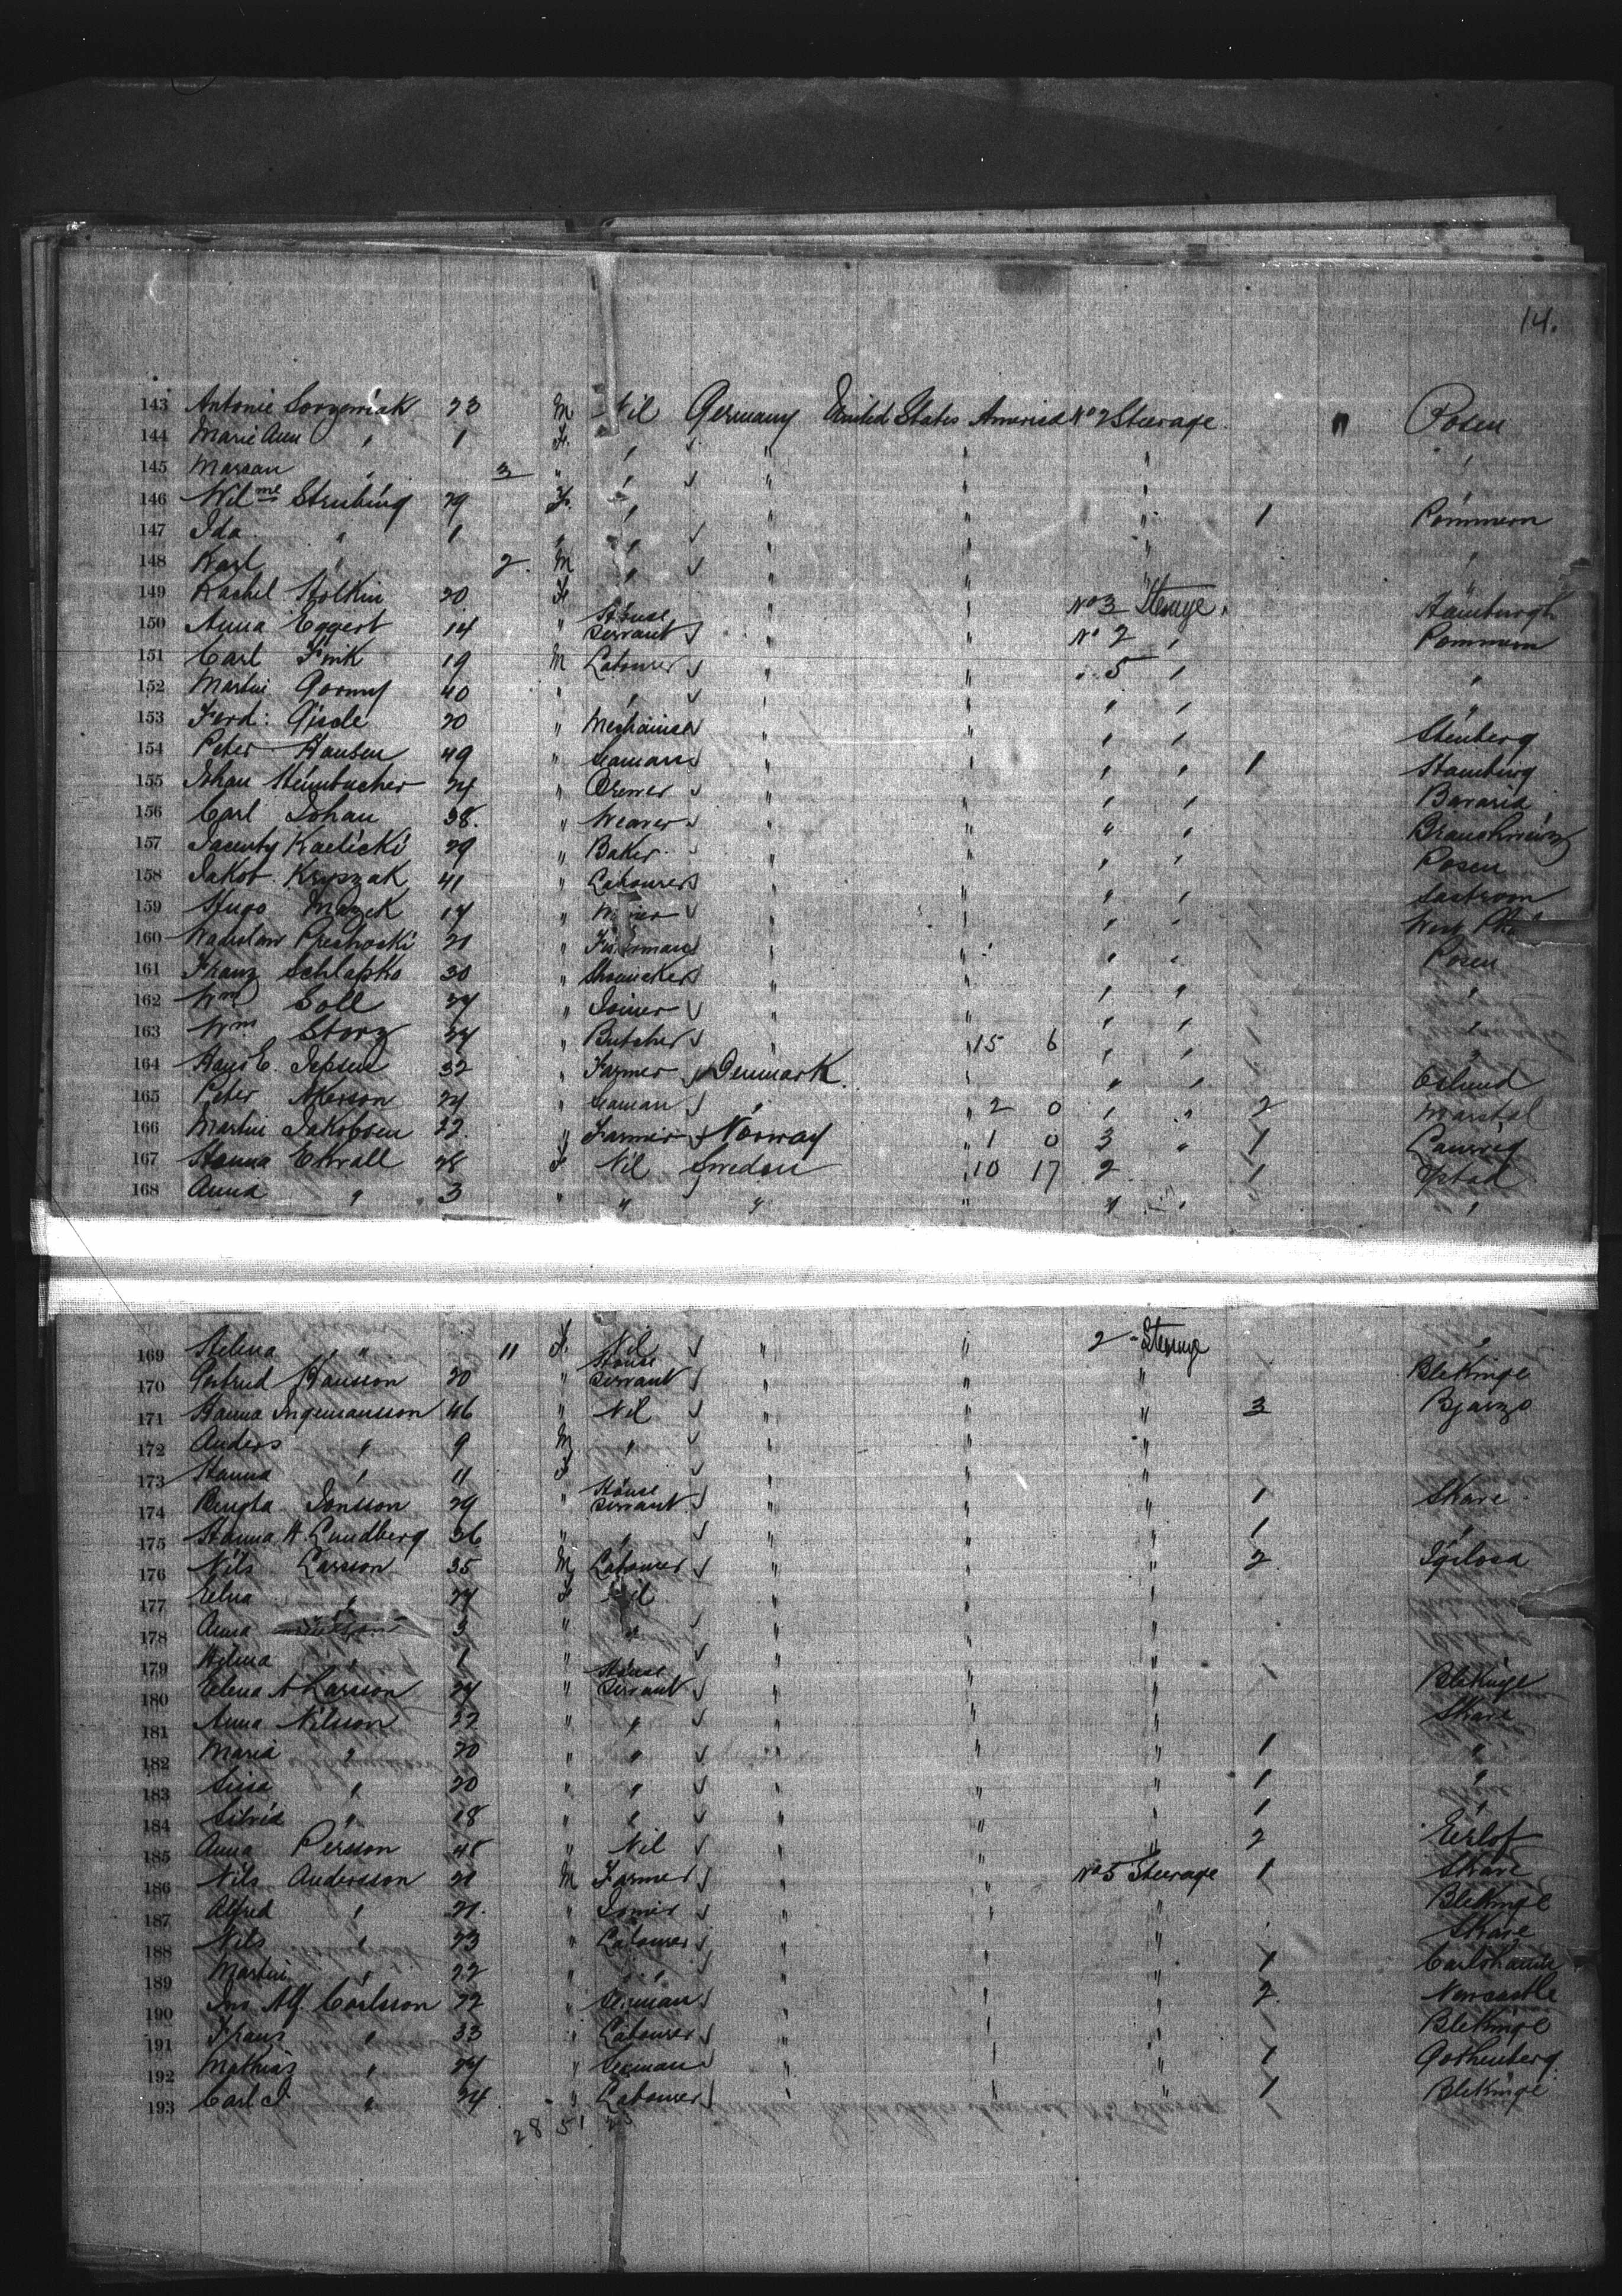 14.
143 Antonie 23 M Nil Germany United States America No 2 Steerage Posen
144 Marie Ann " 1 F. " " " " "
145 " 3 " " " " " "
146 Wilme Strubing 29 F. " " " " 1 Pommern
147 Ida " 1 " " " " " "
148 Karl " 2 M " " " " "
149 Rachel Stolkin 20 F " " " No 3 Steerage
150 Anna Eggert 14 " House Servant " " No 2 " Pommern
151 Carl Fink 19 M Labourer " " " 5 " "
152 Martin 40 " " " " " " "
153 Ferd: 20 " Mechanic " " " " Stenberg
154 Peter Hansen 49 " Seaman " " " " 1 Hamburg
155 Johan Steinbacher 24 " Brewer " " " " Bavaria
156 Carl Johan 38. " Weaver " " " "
157 Kaelicki 29 " Baker " " " " Posen
158 Jakob Kryszak 41 " Labourer " " " "
159 Hugo Mazek 17 " " " " " West
160 21 " " " " " Posen
161 Franz Schlapko 30 " Shoemaker " " " " "
162 Wm Soll 24 " Joiner " " " " "
163 Wm Storz 24 " Butcher " " 15 6 " " "
164 Hans E. Jepsen 32 " Farmer Denmark " "
165 Peter 24 " Seaman " " 2 0 " " 2 Marstal
166 Martin Jakobsen 22 " Farmer Norway " 1 0 3 " 1 Laurvig
167 Hanna Ekvall 28 F Nil Sweden " 10 17 2 1 Ystad
168 Anna " 3 " " " " " " "
169 Helena " " 11 F. Nil " " 2 - Steerage "
170 Gertrud Hansson 20 " House Servant " " " Blekinge
171 Hanna Ingemansson 46 " Nil " " " 3
172 Anders " 9 M " " " "
173 Hanna " 11 F " " "
174 Bengta Jonsson 29 " House Servant " " " 1 Skare
175 Hanna H. Lundberg 36 " " " " " 1 "
176 Nils Larsson 35 M Labourer " " " 2
177 Elna " 27 F Nil " " "
178 Anna 3 " " " " "
179 Helena " 1 " " " "
180 Elena A Larsson 24 " House Servant " " " Blekinge
181 Anna Nilsson 22 " " " " " Skare
182 Maria " 20 " " " " " 1 "
183 Sissa " 20 " " " " " 1 "
184 " 18 " " " " " 1 "
185 Anna Persson 48 " Nil " " " 2
186 Nils Andersson 21 M Farmer " " No 5 Steerage 1 Skare
187 Alfred " 21. " Joiner " " " Blekinge
188 Nils " 23 " Labourer " " " Skare
189 Martin " 22 " " " " " 1
190 Jno Alf. Carlsson 22 " Seaman " " " 2 Newcastle
191 Frans " 33 " Labourer " " " Blekinge
192 Mathias " 24 " Seaman " " " 1 Gothenberg
193 Carl J " 24 " Labourer " " " 1 Blekinge
28 51